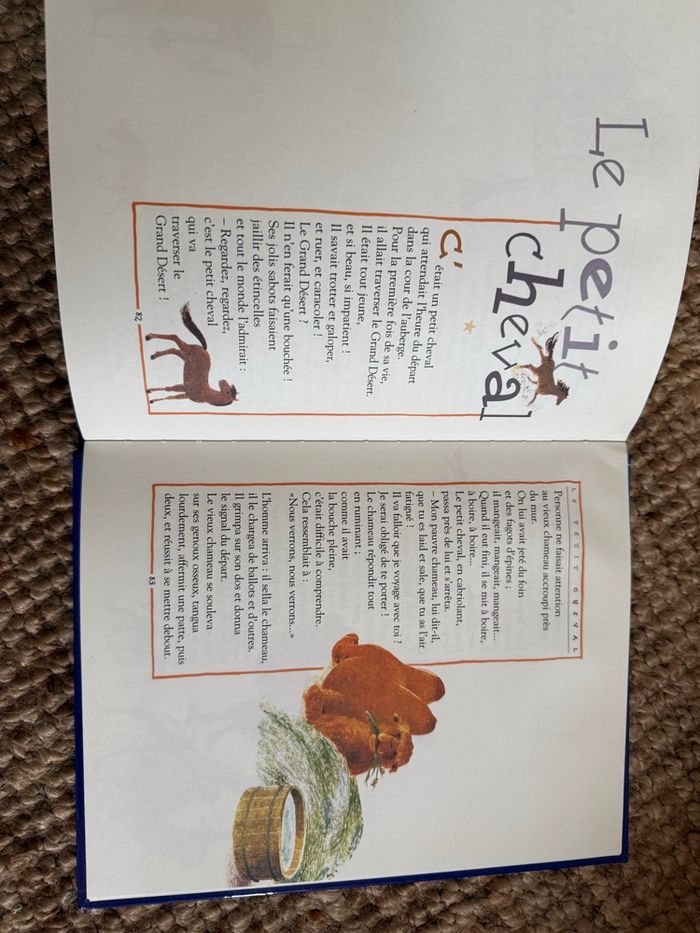 Le petit
cheval
C'était un petit cheval
qui attendait l'heure du départ
dans la cour de l'auberge.
Pour la première fois de sa vie,
il allait traverser le Grand Désert.
Il était tout jeune,
et si beau, si impatient !
Il savait trotter et galoper,
et ruer, et caracoler !
Le Grand Désert ?
Il n'en ferait qu'une bouchée !
Ses jolis sabots faisaient
jaillir des étincelles
et tout le monde l'admirait :
– Regardez, regardez,
c'est le petit cheval
qui va
traverser le
Grand Désert !
82
LE PETIT CHEVAL
Personne ne faisait attention
au vieux chameau accroupi près
du mur.
On lui avait jeté du foin
et des fagots d'épines ;
il mangeait, mangeait, mangeait...
Quand il eut fini, il se mit à boire,
à boire, à boire...
Le petit cheval, en cabriolant,
passa près de lui et s'arrêta.
– Mon pauvre chameau, lui dit-il,
que tu es laid et sale, que tu as l'air
fatigué !
Il va falloir que je voyage avec toi ?
Je serai obligé de te porter !
Le chameau répondit tout
en ruminant ;
comme il avait
la bouche pleine,
c'était difficile à comprendre.
Cela ressemblait à :
«Nous verrons, nous verrons...»
L'homme arriva : il sella le chameau,
il le chargea de ballots et d'outres.
Il grimpa sur son dos et donna
le signal du départ.
Le vieux chameau se souleva
sur ses genoux osseux, tangua
lourdement, affermit une patte, puis
deux, et réussit à se mettre debout.
83